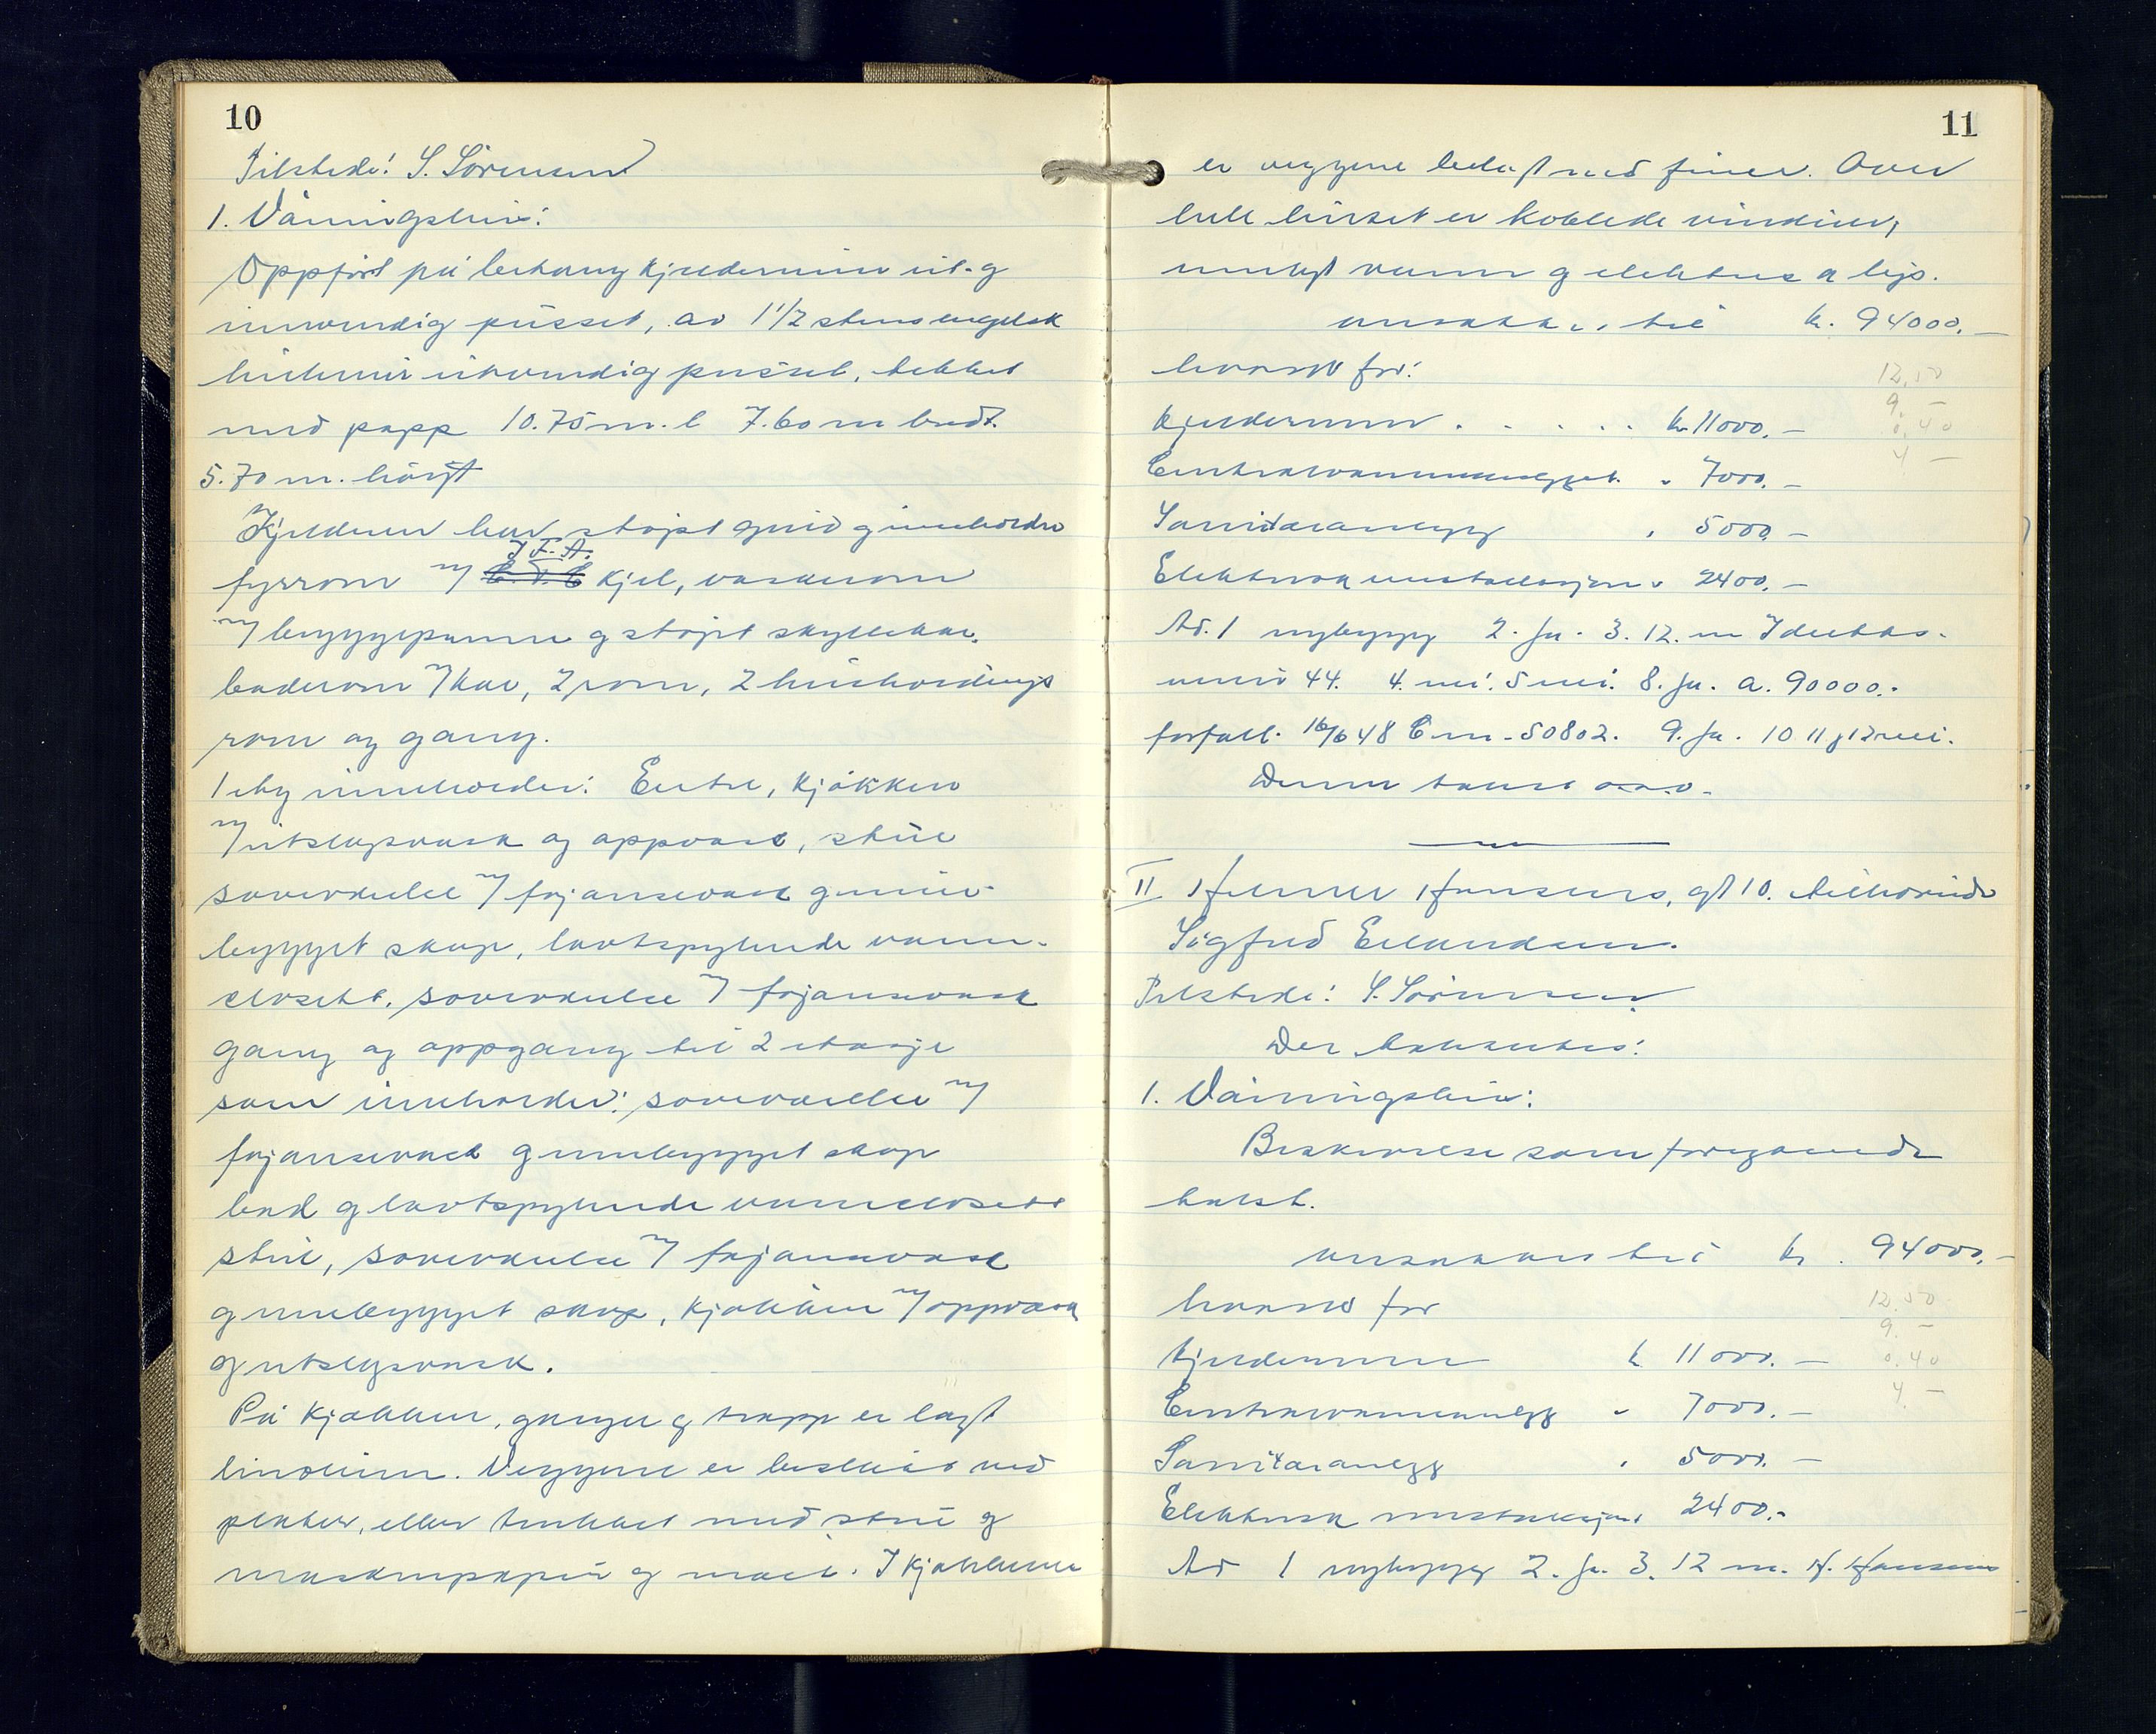 10
Tilstede: S. Sörensen
1. Våningshus:
Oppfört på betong kjedermur ut- og
innvendig pusset, av 1 1/2 stens engelsk
hulmur utvendig pusset, tekket
med papp 10.75 m. l 7.60 m bredt.
5.70 m. höigt
Kjelderen har stöpt gulv og inneholder
fyrrom m/ C.T.C I.F.A. kjel, vaskerom
m/ bryggepanne og stöpt skyllekar,
baderom m/ kar, 2 rom, 2 husholdnings
rom og gang.
1 etg inneholder: Entre, kjökken
m/ utslagsvask og oppvask, stue
soveværelse m/ fajansevask og inne-
bygget skap, lavtspylende vann-
closett, soveværelse m/ fajansevask
gang og oppgang til 2 etasje
som inneholder: soveværelse m/
fajansevask og innebygget skap
bad og lavtspylende vannclosett
stue, soveværelse m/ fajansevask
og innebygget skap, kjökken m/ oppvask
og utslagsvask.
På kjökken, ganger og trapp er lagt
linoleum. Veggene er beslått med
plater, eller trukket med strie og
maskinpapir og malt. I kjökkene
11
er veggene belagt med finer. Over
hele huset er koblede vinduer,
innlagt vann og elektrisk lys.
ansattes til kr. 94000.-
hvorav for:
Kjeldermur . . . . . kr 11000.-
Centralvarmeanlegget " 7000.-
Sanitæranlegg " 5000.-
Elektrisk installasjon " 2400.-
Ad. 1 nybygg 2. ja. 3. 12. m
44. 4. nei. 5 nei. 8. ja. a. 90000.-
forfall. 16/6 48 50802. 9. ja. 10 11 12 nei.
Denne takst
12.50
9. -
0.40
4 -
II Helmer Hansens, gt 10. tilhørende
Sigfred Erlandsen.
Tilstede: S. Sörensen
Der takseres:
1. Våningshus:
Beskrivelse som foregående
takst.
ansattes til kr. 94000.-
hvorav for
Kjeldermur k 11000.-
Centralvarmeanlegg " 7000.-
Sanitæranlegg " 5000.-
Elektrisk installasjon 2400.-
Ad 1 nybygg 2. ja. 3. 12 m. H. Hansens
12.50
9. -
0.40
4. -